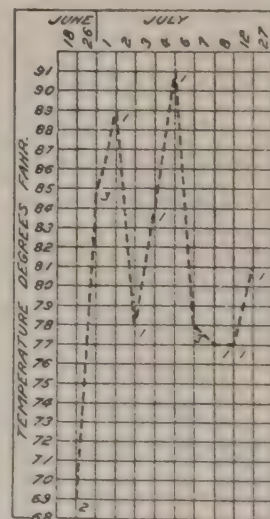 JUNE JULY
18 26 1 2 3 4 5 6 7 8 12 27
TEMPERATURE DEGREES FAHR.
91
90
89
88
87
86
85
84
83
82
81
80
79
78
77
76
75
74
73
72
71
70
69
68